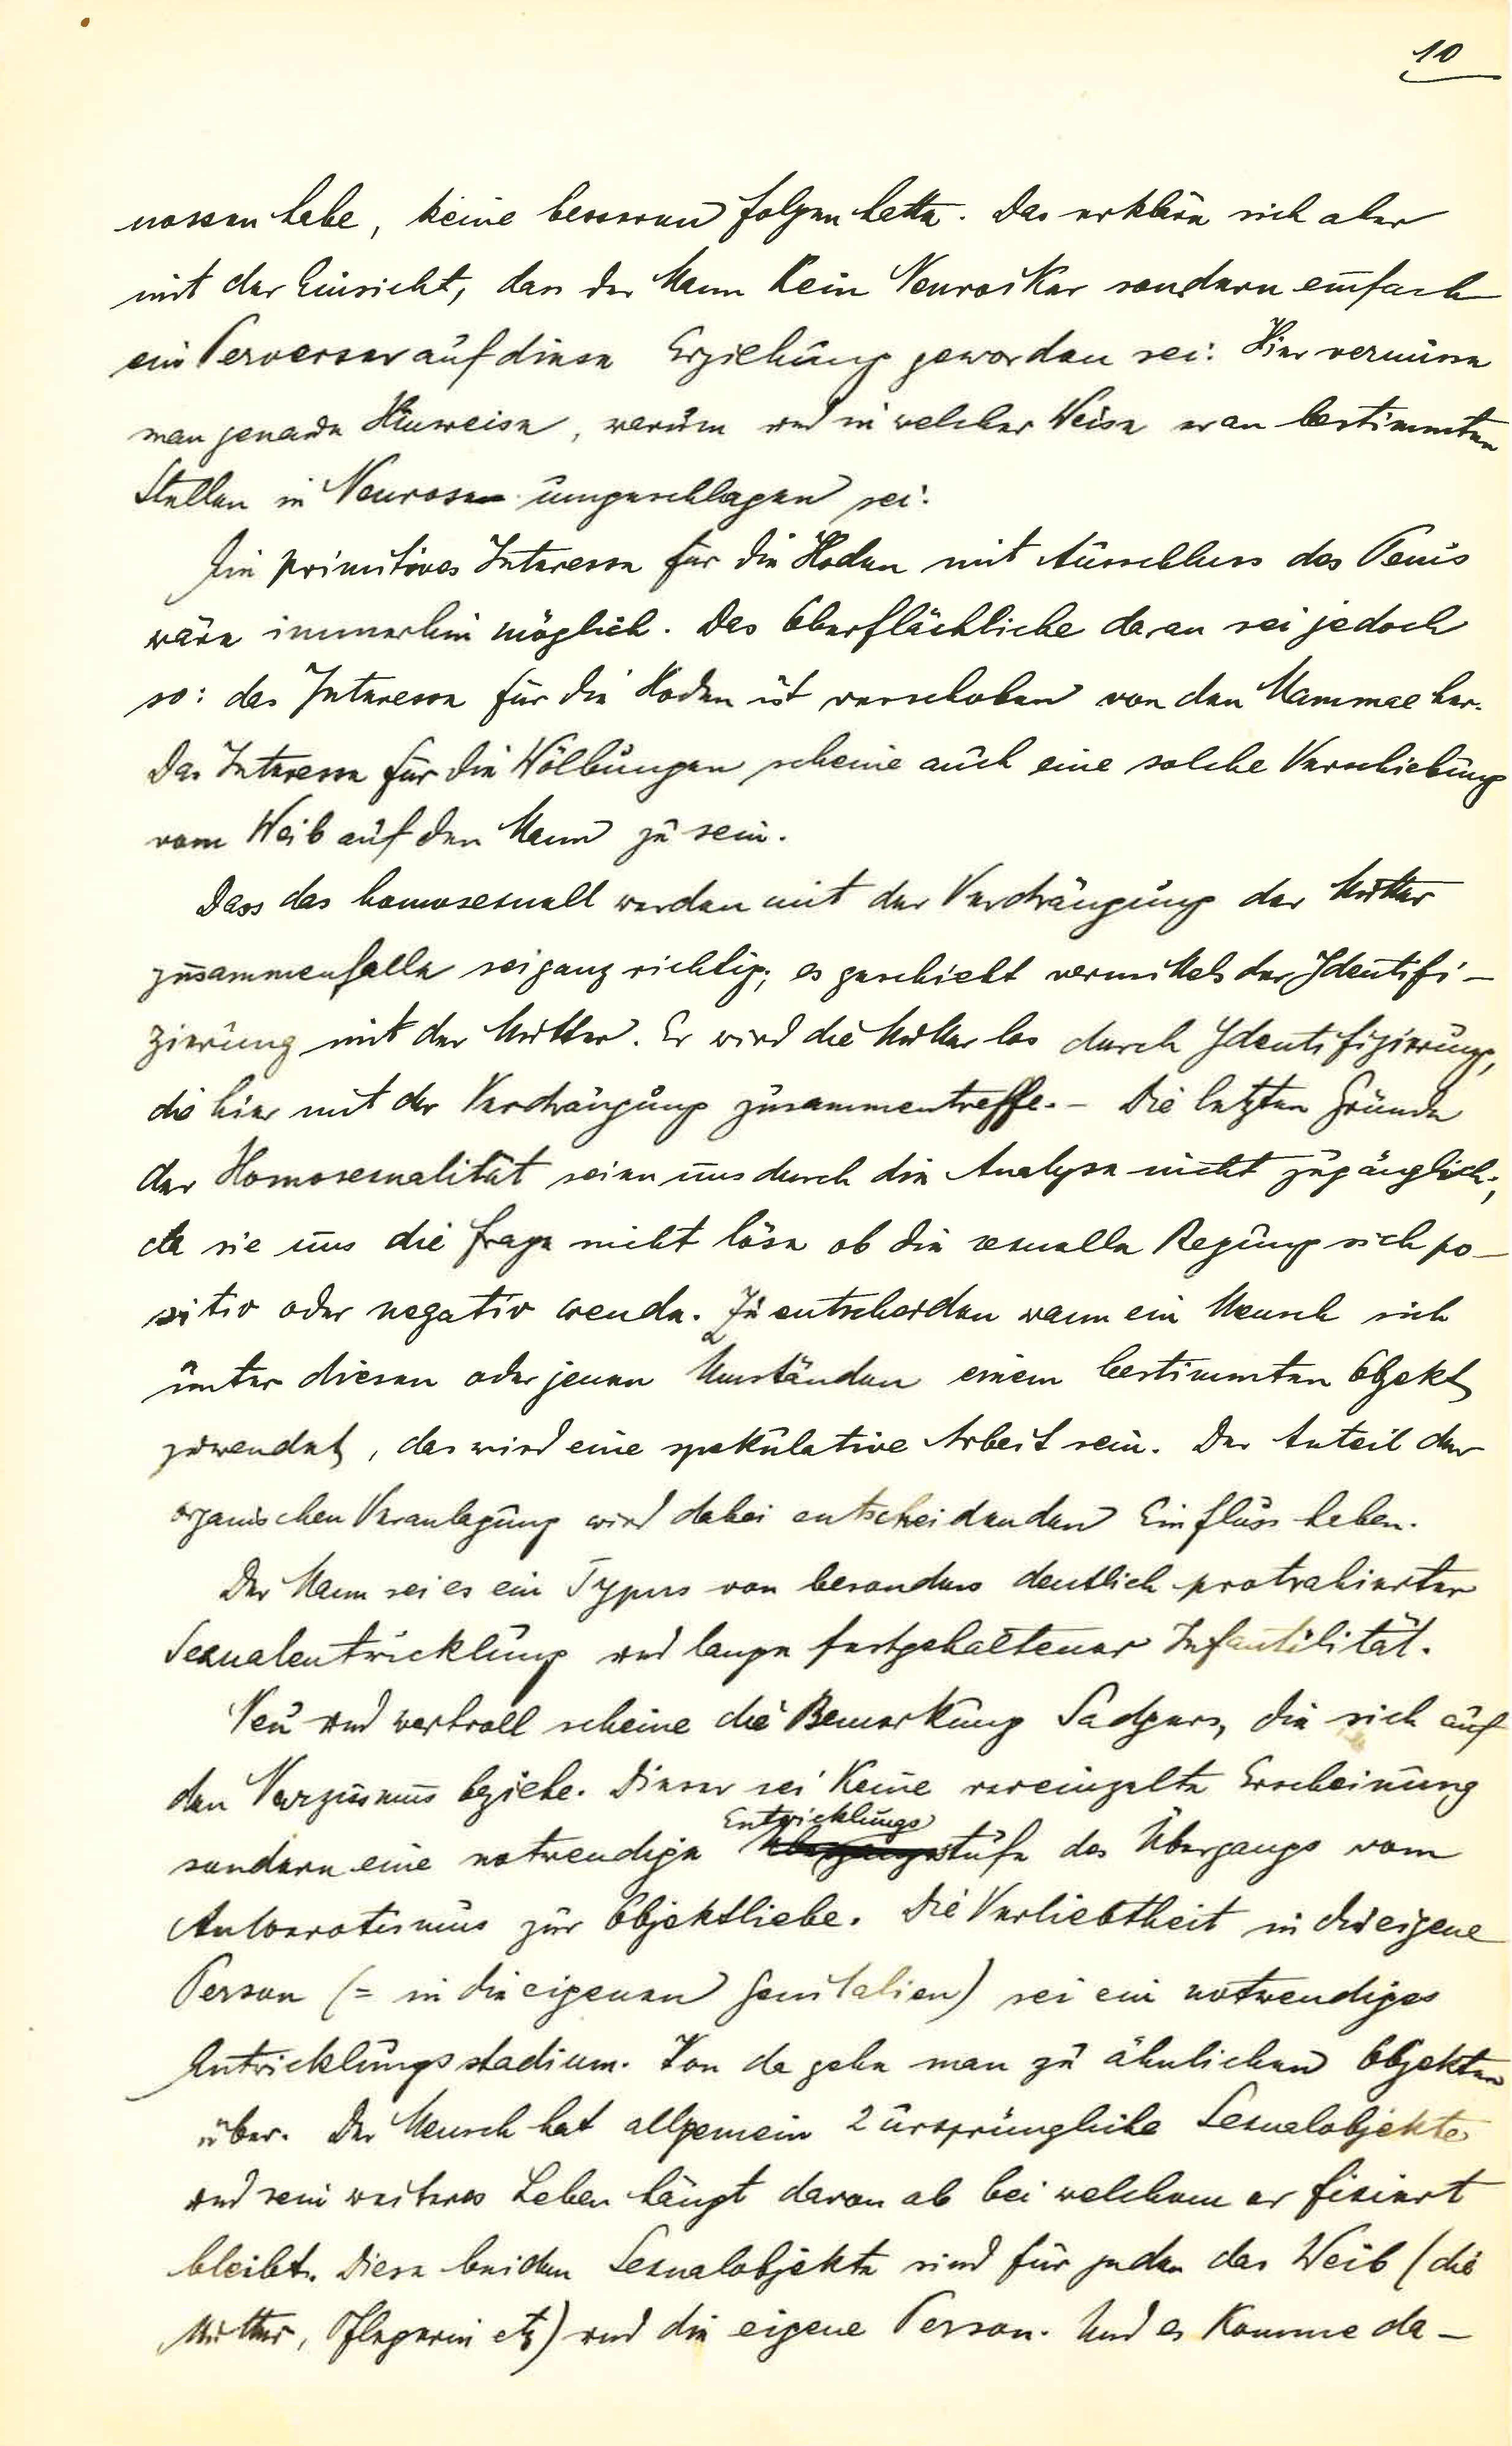 10
nossen habe, keine besseren Folgen hatte. Das erkläre sich aber
mit der Einsicht, dass der Mann kein Neurotiker sondern einfach
ein Perverser auf diese Erziehung geworden sei. Hier vermisse
man genaue Hinweise, warum und in welcher Weise er an bestimmten
Stellen in Neurose umgeschlagen sei.
Ein primitives Interesse für die Hoden mit Ausschluss des Penis
wäre immerhin möglich. Das Oberflächliche daran sei jedoch
so: das Interesse für die Hoden ist verschoben von den Mammae her.
Das Interesse für die Wölbungen scheine auch eine solche Verschiebung
vom Weib auf den Mann zu sein.
Dass das homosexuell werden mit der Verdrängung der Mutter
zusammenfalle sei ganz richtig; es geschieht vermittels der Identifi-
zierung mit der Mutter. Er wird die Mutter los durch Identifizierung,
die hier mit der Verdrängung zusammentreffe. – Die letzten Gründe
der Homosexualität seien uns durch die Analyse nicht zugänglich;
da sie uns die Frage nicht löse ob die sexuelle Regung sich po-
sitiv oder negativ wende. Zu entscheiden wann ein Mensch sich
unter diesen oder jenen Umständen einem bestimmten Objekt
zuwendet, das wird eine spekulative Arbeit sein. Der Anteil der
organischen Veranlagung wird dabei entscheidenden Einfluss haben.
Der Mann sei es ein Typus von besonders deutlich protrahierter
Sexualentwicklung und lange festgehaltener Infantilität.
Neu und wertvoll scheine die Bemerkung Sadgers, die sich auf
den Narzismus beziehe. Dieser sei keine vereinzelte Erscheinung
Entwicklungs
sondern eine notwendige Übergangsstufe des Übergangs vom
Autoerotismus zur Objektliebe. Die Verliebtheit in die eigene
Person (= in die eigenen Genitalien) sei ein notwendiges
Entwicklungsstadium. Von da gehe man zu ähnlichen Objekten
über. Der Mensch hat allgemein 2 ursprüngliche Sexualobjekte
und sein weiteres Leben hängt davon ab bei welchem er fixiert
bleibt. Diese beiden Sexualobjekte sind für jeden das Weib (die
Mutter, Pflegerin etz) und die eigene Person. Und es komme da-